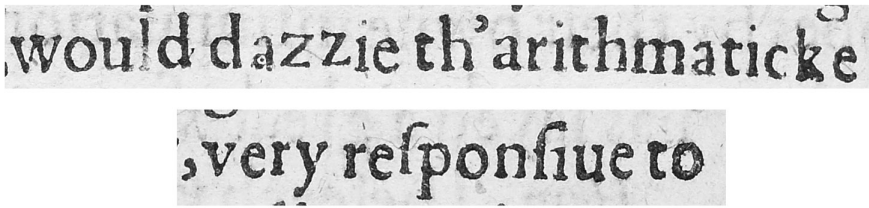 ,would dazzie th’arithmaticke
,very reſponſiue to